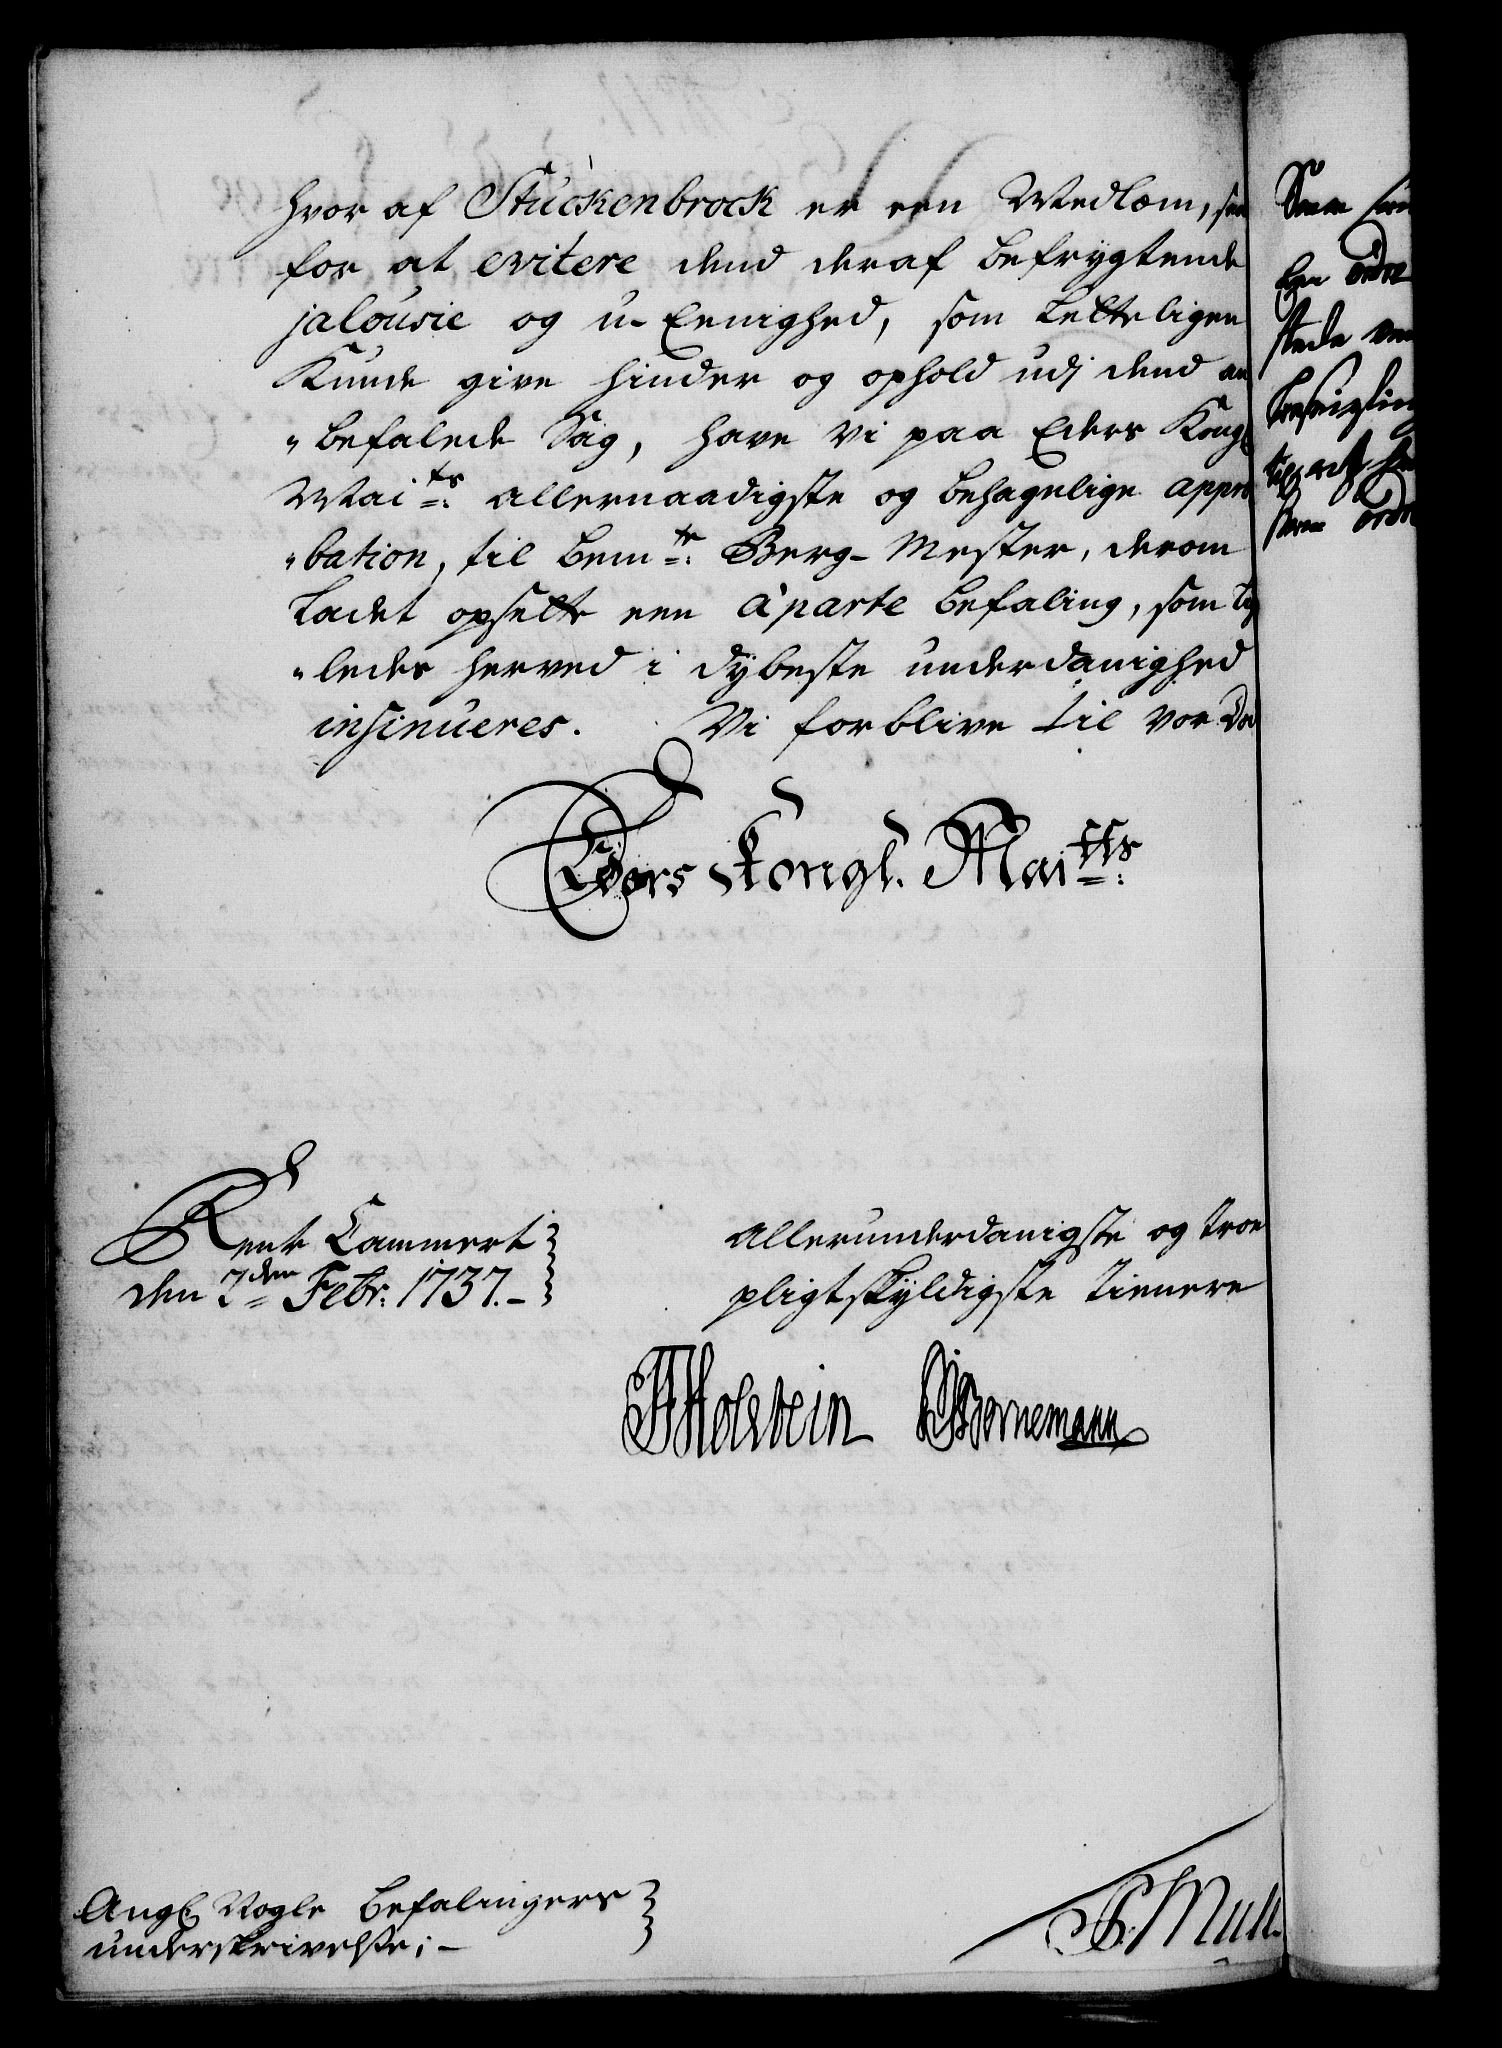 hvor af Stuckenbrock er een Medlem, saa
for at evitere dend deraf befrygtende
jalousie og u-Eenighed, som letteligen
Kunde give hinder og ophold udj dend an
"befalede Sag, have Vi paa Eders Kongl
Mai ts allernaadigste og behagelige appro
"bation, til bem te Berg-Mester, derom
Ladet opsætte een à parte befaling, som lig
"ledes herved i dybeste underdanighed
insinueres. Vi forblive til vor Død
Eders Kongl. Mai tts
Rente Cammeret
den 7 den Febr: 1737.-
Allerunderdanigste og troe
pligtskyldigste tienere
Holstein Bornemann
Ang: Nogle Befalingers
underskrivelse;-
Mull
ordre
stede
ordre